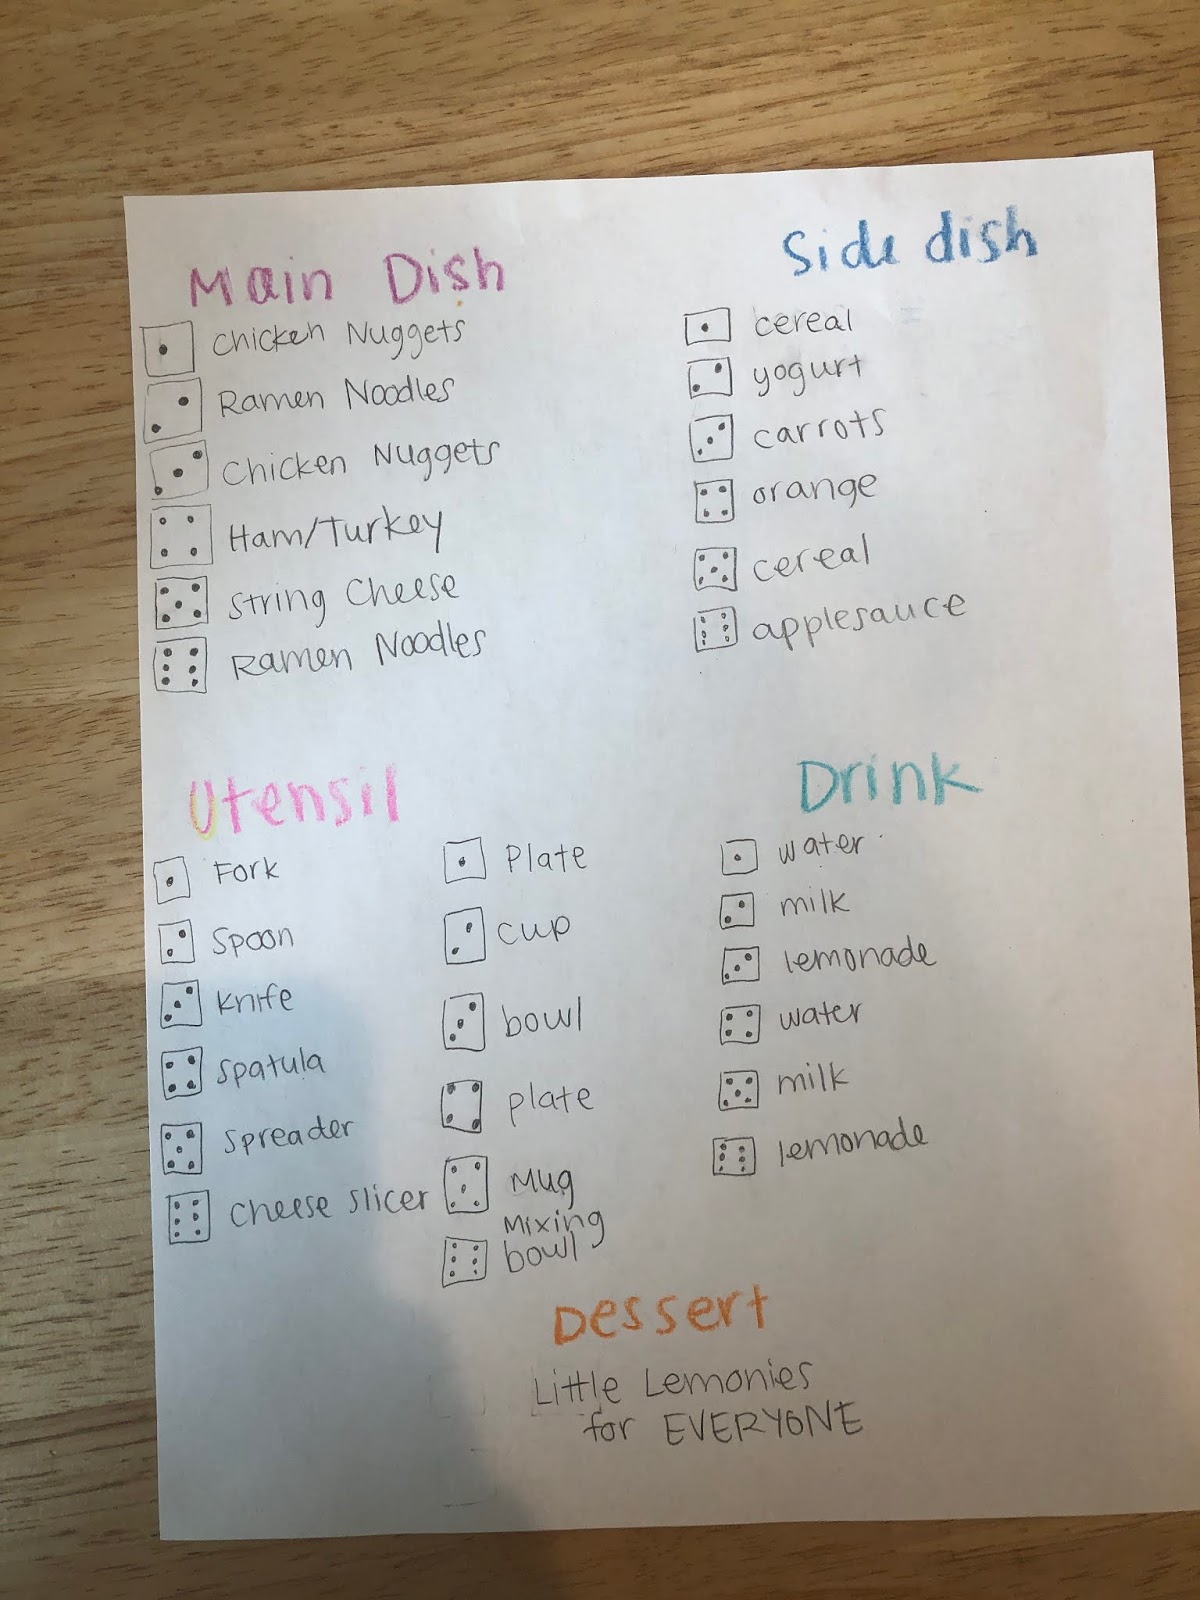 Main Dish
chicken Nuggets
Ramen Noodles
Chicken Nuggets
Ham/Turkey
String Cheese
Ramen Noodles
Side dish
cereal
yogurt
carrots
orange
cereal
applesauce
Utensil
Fork
Spoon
knife
spatula
spreader
cheese slicer
Plate
cup
bowl
plate
Mug
Mixing
bowl
Drink
water
milk
lemonade
water
milk
lemonade
Dessert
Little Lemonies
for EVERYONE